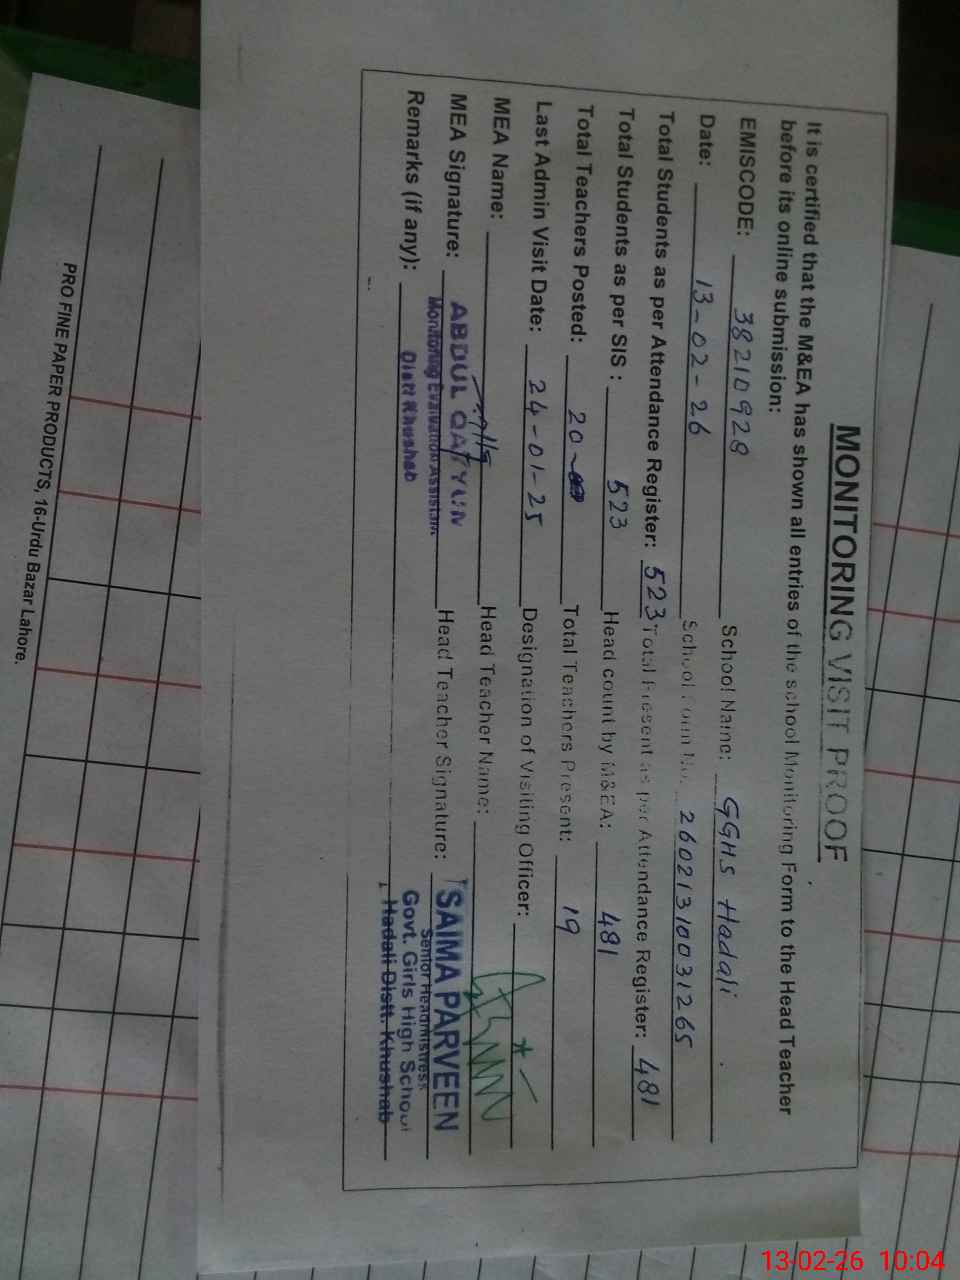 MONITORING VISIT PROOF
It is certified that the M&EA has shown all entries of the school Monitoring Form to the Head Teacher
before its online submission:
EMISCODE: 38210928 School Name: GGHS Hadali
Date: 13-02-26 School Form No. 26021310031265
Total Students as per Attendance Register: 523 Total Present as per Attendance Register: 481
Total Students as per SIS : 523 Head count by M&EA: 481
Total Teachers Posted: 20 Total Teachers Present: 19
Last Admin Visit Date: 24-01-25 Designation of Visiting Officer:
MEA Name: Head Teacher Name:
MEA Signature: ABDUL QAYYUM Head Teacher Signature: SAIMA PARVEEN
Monitoring Evaluation Assistant Senior Headmistress
Remarks (if any): Distt Khushab Govt. Girls High School
Hadali Distt. Khushab
PRO FINE PAPER PRODUCTS, 16-Urdu Bazar Lahore.
13-02-26 10:04